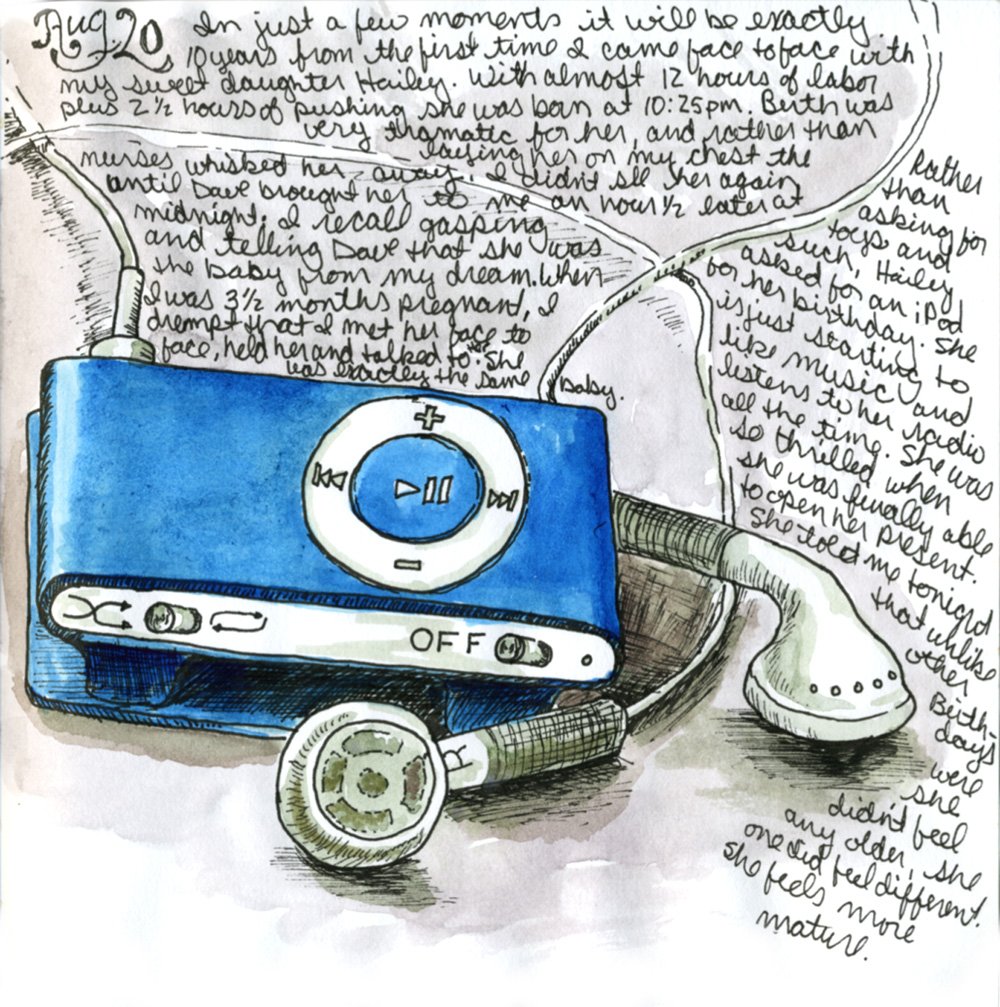 Aug 20
In just a few moments it will be exactly
10 years from the first time I came face to face with
my sweet daughter Hailey. With almost 12 hours of labor
plus 2½ hours of pushing she was born at 10:25pm. Birth was
very tramatic for her, and rather than
laying her on my chest the
nurses whisked her away. I didn't see her again
until Dave brought her to me an hour ½ later at
midnight. I recall gasping
and telling Dave that she was
the baby from my dream. When
I was 3½ months pregnant, I
drempt that I met her face to
face, held her and talked to her. She
was exactly the same baby.
Rather
than
asking for
toys and
such, Hailey
asked for an iPod
for her birthday. She
is just starting to
like music and
listens to her radio
all the time. She was
so thrilled when
she was finally able
to open her present.
She told me tonight
that unlike
other
Birth-
days
were
she
didn't feel
any older, she
one did feel different.
she feels more
mature.
+
-
OFF
R